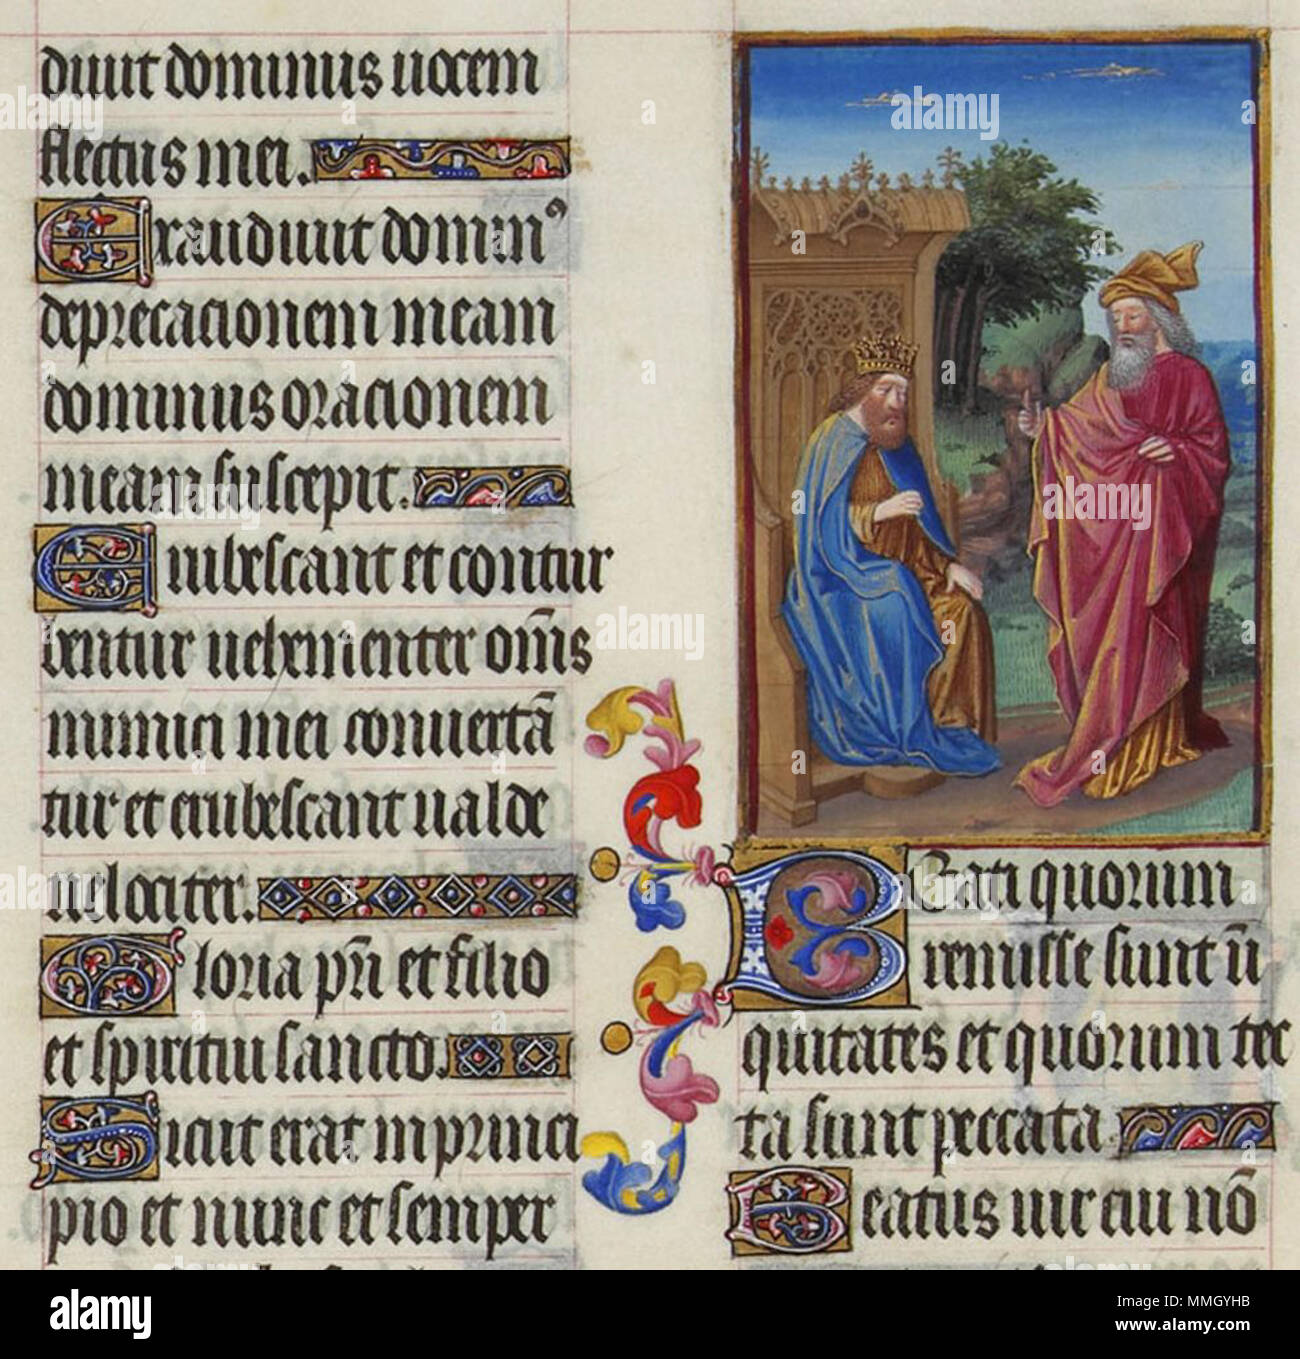 diuit dominus uocem
flectus mei.
Exaudiuit domin⁹
deprecacionem meam
dominus oracionem
meam suscepit.
Erubescant et contur
bentur uehementer om̄s
inimici mei conuertā
tur et erubescant ualde
uelociter.
Gloria pr̄i et filio
et spiritui sancto.
Sicut erat in princi
pio et nunc et semper
Beati quorum
remisse sunt ī
quitates et quorum tec
ta sunt peccata.
Beatus uir cui nō
alamy
Image ID: MMGYHB
www.alamy.com